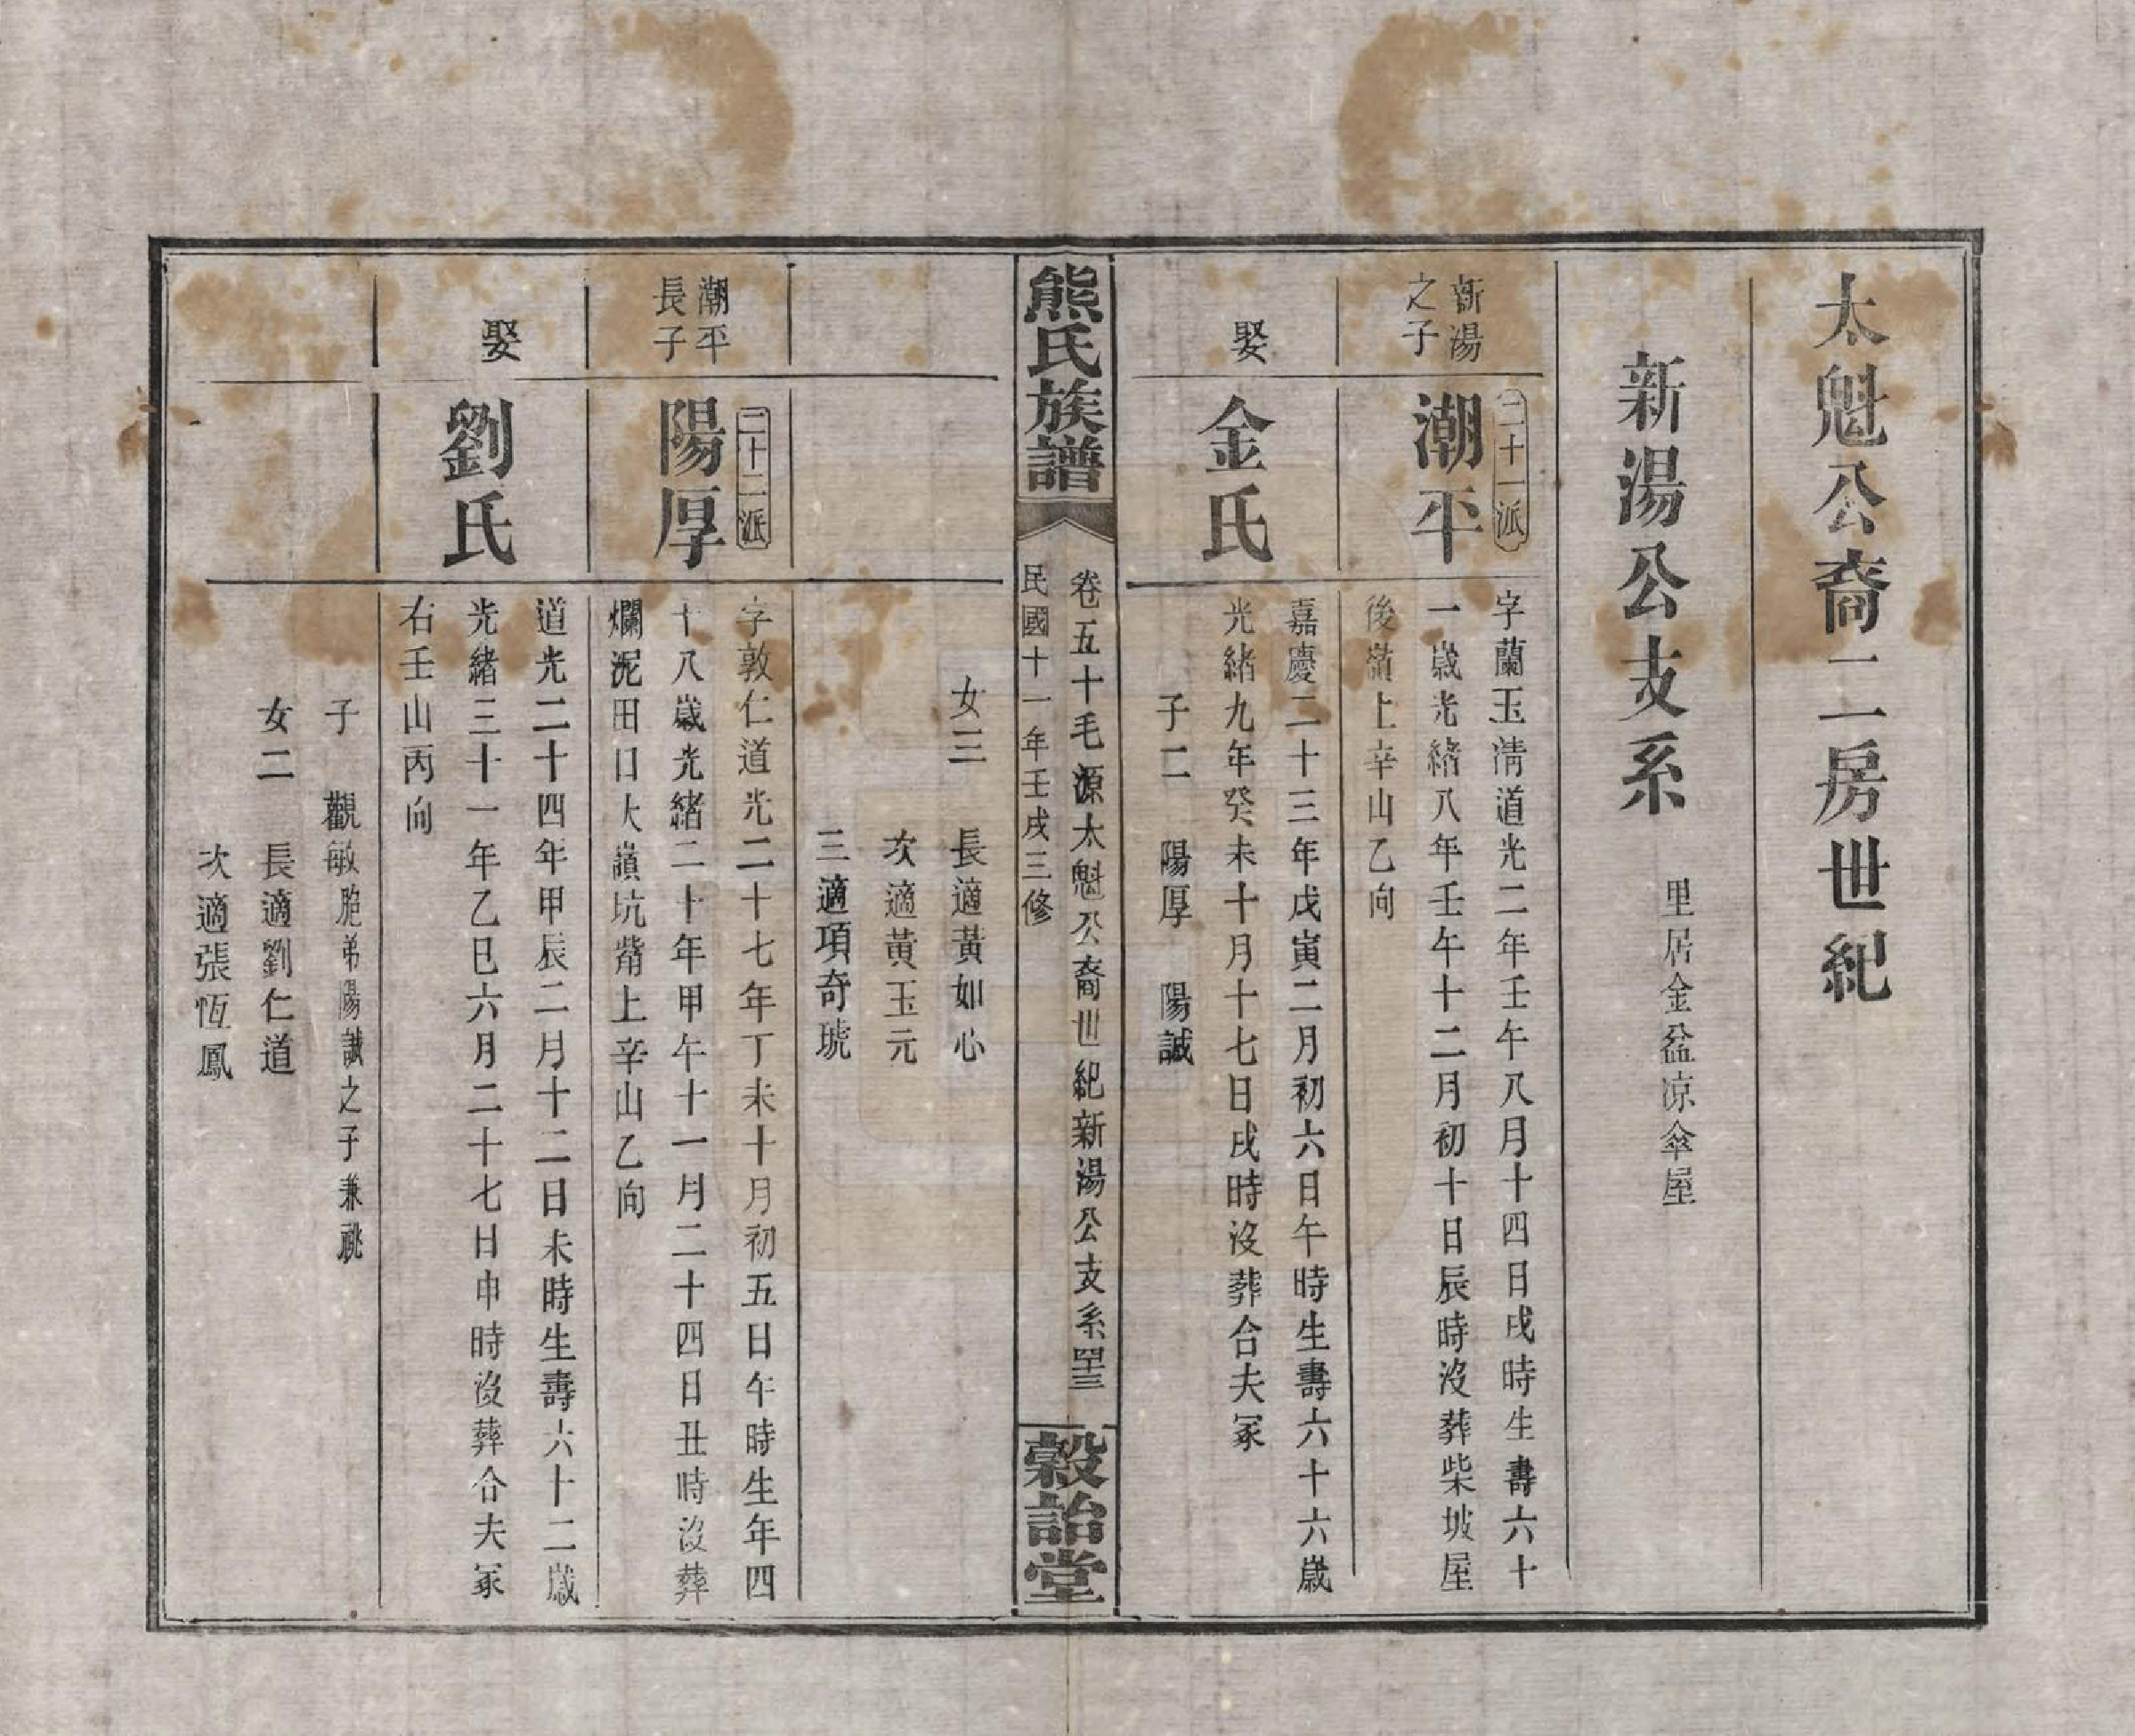 太魁公裔二房世紀
新湯公支系
里居金盆凉傘屋
新湯
之子
二十一派
潮平
字蘭玉淸道光二年壬午八月十四日戌時生壽六十
一歲光緖八年壬午十二月初十日辰時沒葬柴坡屋
後嶺上辛山乙向
娶
金氏
嘉慶二十三年戊寅二月初六日午時生壽六十六歲
光緖九年癸未十月十七日戌時沒葬合夫冢
子二 陽厚 陽誠
熊氏族譜
卷五十毛源太魁公裔世紀新湯公支系
民國十一年壬戌三修
穀詒堂
女三 長適黃如心
次適黃玉元
三適項奇琥
潮平
長子
二十二派
陽厚
字敦仁道光二十七年丁未十月初五日午時生年四
十八歲光緖二十年甲午十一月二十四日丑時沒葬
爛泥田口大嶺坑觜上辛山乙向
娶
劉氏
道光二十四年甲辰二月十二日未時生壽六十二歲
光緖三十一年乙巳六月二十七日申時沒葬合夫冢
右壬山丙向
子 觀敏胞弟陽誠之子兼祧
女二 長適劉仁道
次適張恆鳳